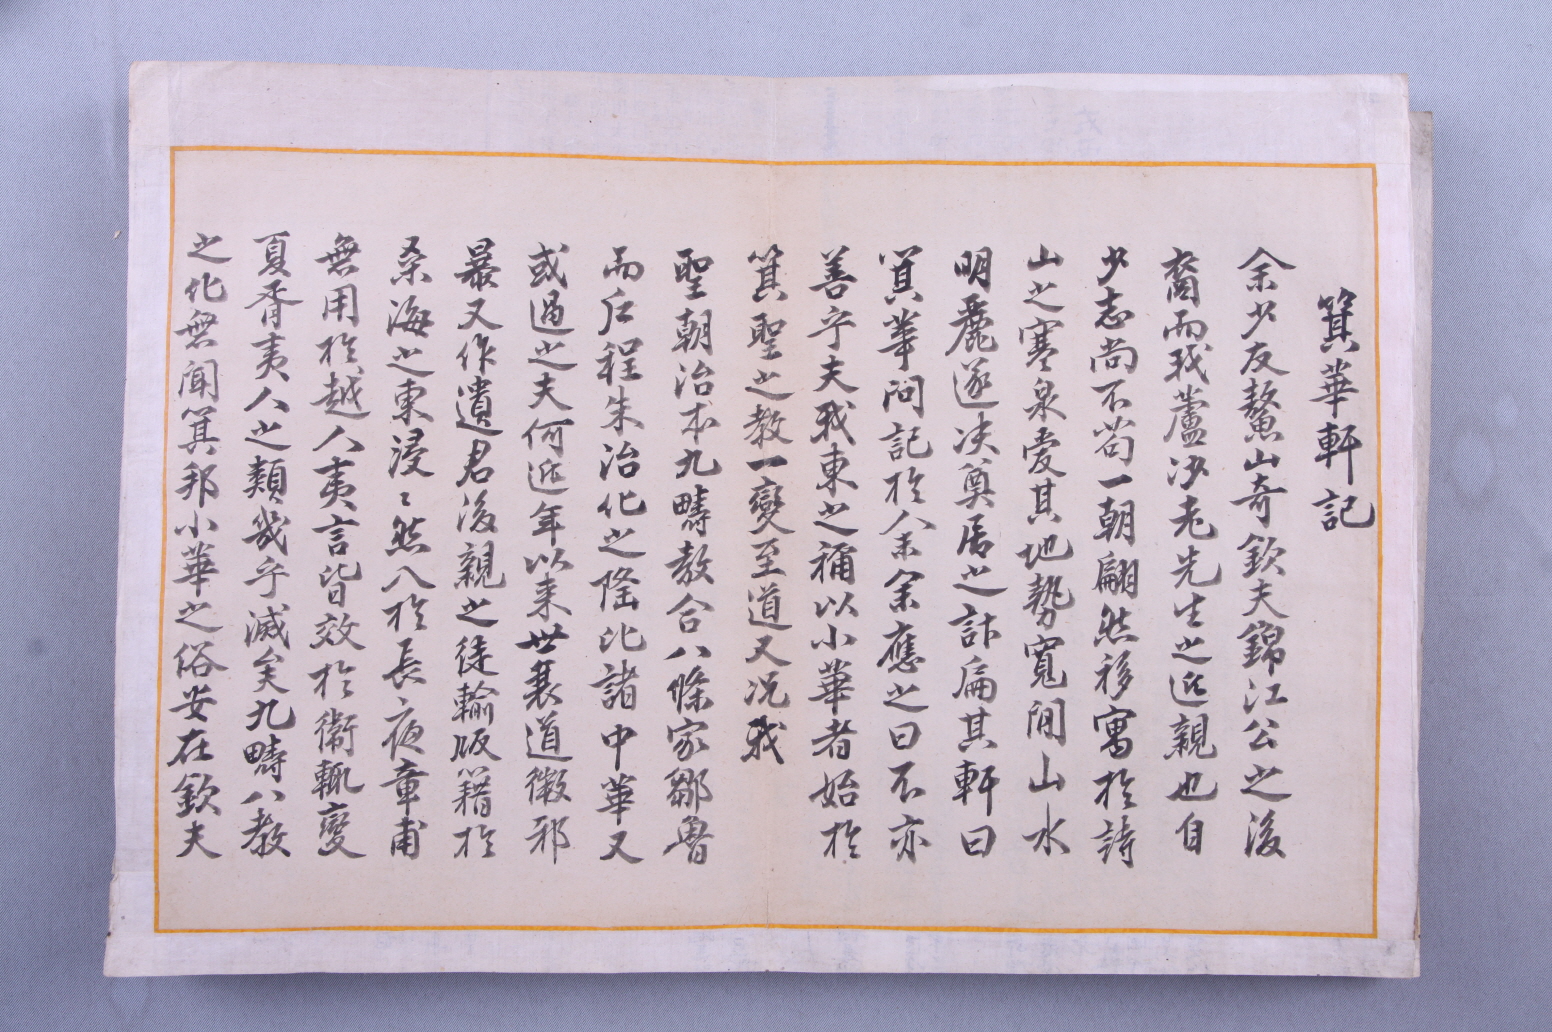 箕華軒記
余少友鰲山奇欽夫錦江公之後
裔而我蘆沙老先生之近親也自
少志尚不苟一朝翩然移寓於詩
山之寒泉爱其地勢寬閒山水
明麗遂决奠居之計扁其軒曰
箕華問記於余余應之曰不亦
善乎夫我東之稱以小華者始於
箕聖之教一變至道又况我
聖朝治本九疇教合八條家鄒魯
而户程朱治化之隆比諸中華又
或過之夫何近年以来世衰道微邪
暴又作遺君後親之徒輸版籍於
桑海之東浸〻然入於長夜章甫
無用於越人夷言皆效於衛輒變
夏胥夷人之類幾乎滅矣九疇八教
之化無聞箕邦小華之俗安在欽夫